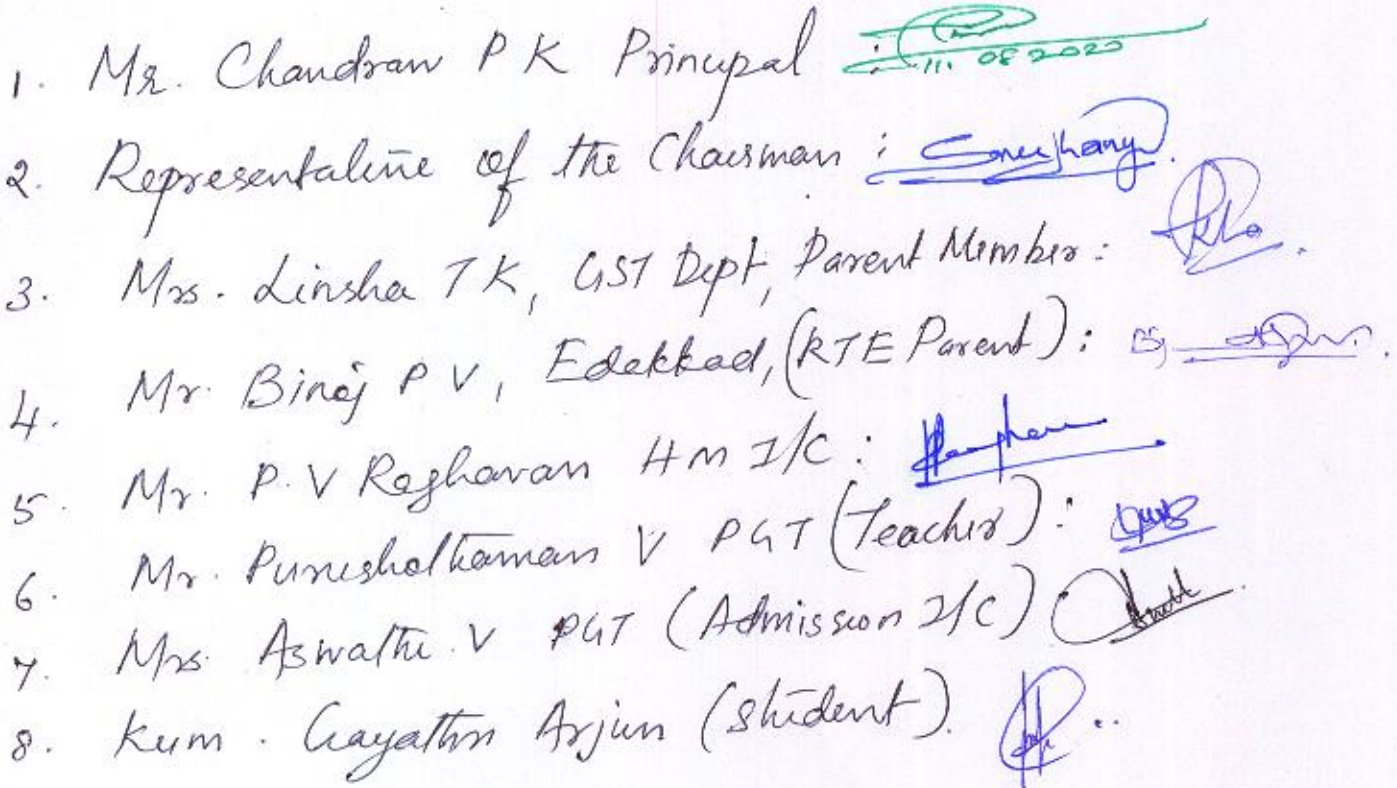 1. Mr. Chandran P K Principal : 11.08.2020
2. Representative of the Chairman :
3. Mrs. Linsha T K, GST Dept, Parent Member :
4. Mr. Binoj P V, Edakkad, (RTE Parent) :
5. Mr. P. V Raghavan HM I/C :
6. Mr. Purushothaman V PGT (Teacher) :
7. Mrs. Aswathi V PGT (Admission I/C)
8. Kum. Gayathri Arjun (Student).